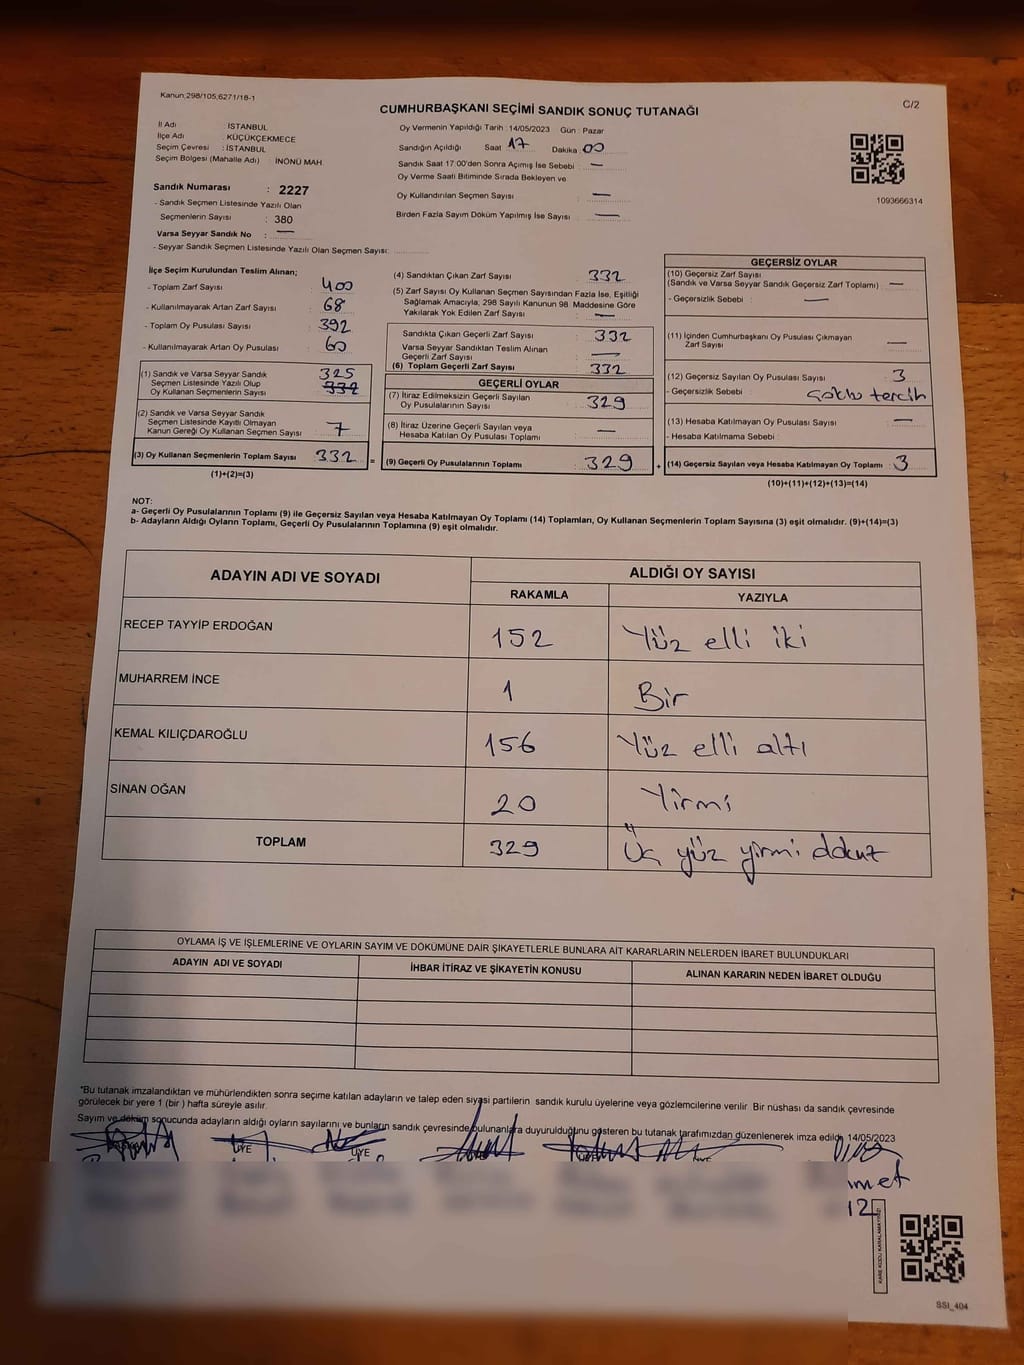 Kanun;298/105,6271/18-1
CUMHURBAŞKANI SEÇİMİ SANDIK SONUÇ TUTANAĞI
C/2
İl Adı : İSTANBUL
İlçe Adı : KÜÇÜKÇEKMECE
Seçim Çevresi : İSTANBUL
Seçim Bölgesi (Mahalle Adı) : İNÖNÜ MAH
Sandık Numarası : 2227
- Sandık Seçmen Listesinde Yazılı Olan
Seçmenlerin Sayısı : 380
Varsa Seyyar Sandık No : —
- Seyyar Sandık Seçmen Listesinde Yazılı Olan Seçmen Sayısı:
Oy Vermenin Yapıldığı Tarih : 14/05/2023 Gün : Pazar
Sandığın Açıldığı Saat 17 Dakika : 00
Sandık Saat 17:00'den Sonra Açılmış İse Sebebi : —
Oy Verme Saati Bitiminde Sırada Bekleyen ve
Oy Kullandırılan Seçmen Sayısı : —
Birden Fazla Sayım Döküm Yapılmış İse Sayısı : —
1093666314
İlçe Seçim Kurulundan Teslim Alınan;
- Toplam Zarf Sayısı : 400
- Kullanılmayarak Artan Zarf Sayısı : 68
- Toplam Oy Pusulası Sayısı : 392
- Kullanılmayarak Artan Oy Pusulası : 60
(1) Sandık ve Varsa Seyyar Sandık
Seçmen Listesinde Yazılı Olup
Oy Kullanan Seçmenlerin Sayısı : 325
332
(2) Sandık ve Varsa Seyyar Sandık
Seçmen Listesinde Kayıtlı Olmayan
Kanun Gereği Oy Kullanan Seçmen Sayısı : 7
(3) Oy Kullanan Seçmenlerin Toplam Sayısı : 332 =
(1)+(2)=(3)
(4) Sandıktan Çıkan Zarf Sayısı : 332
(5) Zarf Sayısı Oy Kullanan Seçmen Sayısından Fazla İse, Eşitliği
Sağlamak Amacıyla, 298 Sayılı Kanunun 98. Maddesine Göre
Yakılarak Yok Edilen Zarf Sayısı : —
Sandıkta Çıkan Geçerli Zarf Sayısı : 332
Varsa Seyyar Sandıktan Teslim Alınan
Geçerli Zarf Sayısı : —
(6) Toplam Geçerli Zarf Sayısı : 332
GEÇERLİ OYLAR
(7) İtiraz Edilmeksizin Geçerli Sayılan
Oy Pusulalarının Sayısı : 329
(8) İtiraz Üzerine Geçerli Sayılan veya
Hesaba Katılan Oy Pusulası Toplamı : —
(9) Geçerli Oy Pusulalarının Toplamı : 329 +
GEÇERSİZ OYLAR
(10) Geçersiz Zarf Sayısı
(Sandık ve Varsa Seyyar Sandık Geçersiz Zarf Toplamı) : —
- Geçersizlik Sebebi : —
(11) İçinden Cumhurbaşkanı Oy Pusulası Çıkmayan
Zarf Sayısı : —
(12) Geçersiz Sayılan Oy Pusulası Sayısı : 3
- Geçersizlik Sebebi : çoklu tercih
(13) Hesaba Katılmayan Oy Pusulası Sayısı : —
- Hesaba Katılmama Sebebi :
(14) Geçersiz Sayılan veya Hesaba Katılmayan Oy Toplamı : 3
(10)+(11)+(12)+(13)=(14)
NOT:
a- Geçerli Oy Pusulalarının Toplamı (9) ile Geçersiz Sayılan veya Hesaba Katılmayan Oy Toplamı (14) Toplamları, Oy Kullanan Seçmenlerin Toplam Sayısına (3) eşit olmalıdır. (9)+(14)=(3)
b- Adayların Aldığı Oyların Toplamı, Geçerli Oy Pusulalarının Toplamına (9) eşit olmalıdır.
ADAYIN ADI VE SOYADI ALDIĞI OY SAYISI
RAKAMLA YAZIYLA
RECEP TAYYİP ERDOĞAN 152 Yüz elli iki
MUHARREM İNCE 1 Bir
KEMAL KILIÇDAROĞLU 156 Yüz elli altı
SİNAN OĞAN 20 Yirmi
TOPLAM 329 Üç yüz yirmi dokuz
OYLAMA İŞ VE İŞLEMLERİNE VE OYLARIN SAYIM VE DÖKÜMÜNE DAİR ŞİKAYETLERLE BUNLARA AİT KARARLARIN NELERDEN İBARET BULUNDUKLARI
ADAYIN ADI VE SOYADI İHBAR İTİRAZ VE ŞİKAYETİN KONUSU ALINAN KARARIN NEDEN İBARET OLDUĞU
*Bu tutanak imzalandıktan ve mühürlendikten sonra seçime katılan adayların ve talep eden siyasi partilerin sandık kurulu üyelerine veya gözlemcilerine verilir. Bir nushası da sandık çevresinde
görülecek bir yere 1 (bir) hafta süreyle asılır.
Sayım ve döküm sonucunda adayların aldığı oyların sayılarını ve bunların sandık çevresinde bulunanlara duyurulduğunu gösteren bu tutanak tarafımızdan düzenlenerek imza edildi. 14/05/2023
ÜYE ÜYE
KARE KODU KARALAMAYINIZ!
SSI_404